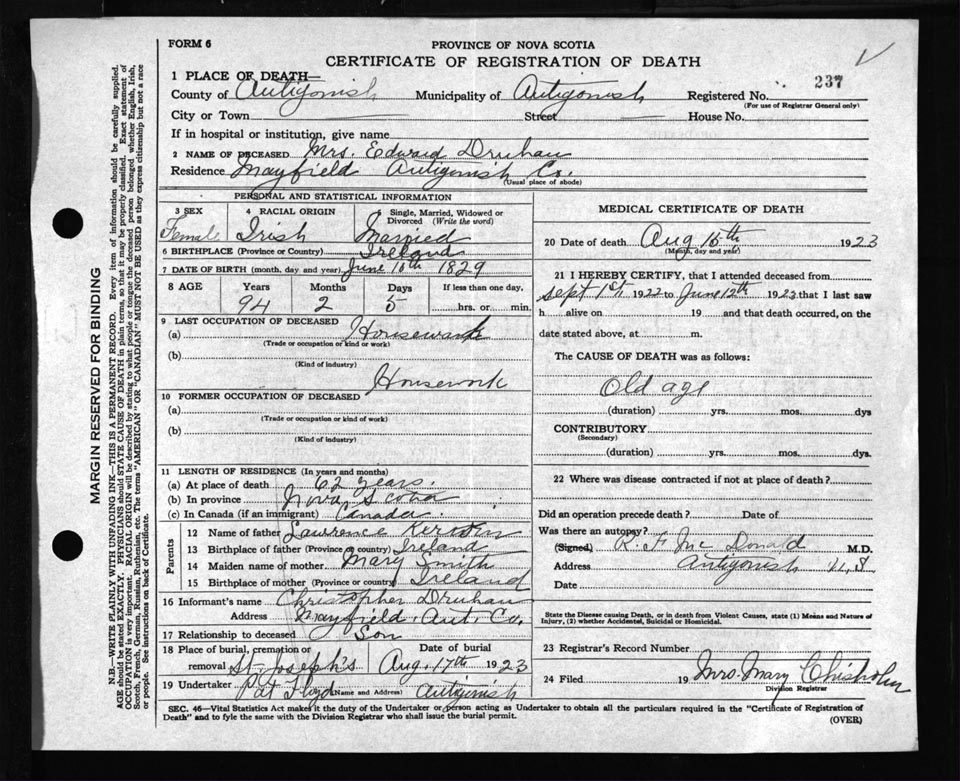 FORM 6
PROVINCE OF NOVA SCOTIA
CERTIFICATE OF REGISTRATION OF DEATH
1 PLACE OF DEATH—
237
County of Antigonish Municipality of Antigonish Registered No.
(For use of Registrar General only)
City or Town Street House No.
If in hospital or institution, give name
2 NAME OF DECEASED Mrs. Edward Druhan
Residence Mayfield Antigonish Co.
(Usual place of abode)
PERSONAL AND STATISTICAL INFORMATION
3 SEX Female
4 RACIAL ORIGIN Irish
Single, Married, Widowed or Divorced (Write the word)
Married
6 BIRTHPLACE (Province or Country) Ireland
7 DATE OF BIRTH (month, day, and year) June 10th 1829
8 AGE Years Months Days If less than one day,
94 2 5 hrs. or min.
9 LAST OCCUPATION OF DECEASED
(a) Housework
(Trade or occupation or kind of work)
(b)
(Kind of industry)
Housework
10 FORMER OCCUPATION OF DECEASED
(a)
(Trade or occupation or kind of work)
(b)
(Kind of industry)
11 LENGTH OF RESIDENCE (In years and months)
(a) At place of death 62 years.
(b) In province Nova Scotia
(c) In Canada (if an immigrant) Canada
Parents
12 Name of father Laurence
13 Birthplace of father (Province or country) Ireland
14 Maiden name of mother Mary Smith
15 Birthplace of mother (Province or country) Ireland
16 Informant's name Christopher Druhan
Address Mayfield, Ant. Co.
17 Relationship to deceased Son
18 Place of burial, cremation or removal St. Joseph's
Date of burial
Aug. 17th 1923
19 Undertaker Pat Floyd (Name and Address) Antigonish
MEDICAL CERTIFICATE OF DEATH
20 Date of death Aug 15th 1923
(Month, day and year)
21 I HEREBY CERTIFY, that I attended deceased from
Sept 1st 1922 to June 12th 1923 that I last saw
h alive on 19 and that death occurred, on the
date stated above, at m.
The CAUSE OF DEATH was as follows:
Old age
(duration) yrs. mos. dys
CONTRIBUTORY
(Secondary)
(duration) yrs. mos. dys.
22 Where was disease contracted if not at place of death?
Did an operation precede death? Date of
Was there an autopsy?
(Signed) R. F. McDonald M.D.
Address Antigonish N.S
Date
State the Disease causing Death, or in death from Violent Causes, state (1) Means and Nature of
Injury, (2) whether Accidental, Suicidal or Homicidal.
23 Registrar's Record Number
24 Filed 19 Mrs. Mary Chisholm
Division Registrar
SEC. 46—Vital Statistics Act makes it the duty of the Undertaker or person acting as Undertaker to obtain all the particulars required in the "Certificate of Registration of
Death" and to fyle the same with the Division Registrar who shall issue the burial permit.
(OVER)
MARGIN RESERVED FOR BINDING
N.B.—WRITE PLAINLY WITH UNFADING INK—THIS IS A PERMANENT RECORD. Every item of information should be carefully supplied.
AGE should be stated EXACTLY. PHYSICIANS should STATE CAUSE OF DEATH in plain terms, so that it may be properly classified. Exact statement of
OCCUPATION is very important. RACIAL ORIGIN will be described by stating to what people or tongue the deceased person belonged whether English, Irish,
Scotch, French, German, Russian, Ruthenian, etc. The terms "AMERICAN" OR "CANADIAN" MUST NOT BE USED as they express citizenship but not a race
or people. See instructions on back of Certificate.